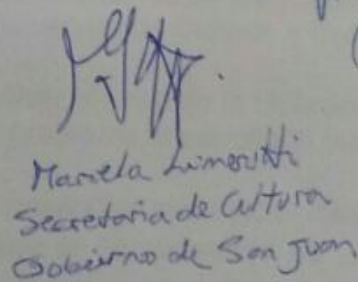 Mariela Limerutti
Secretaria de Cultura
Gobierno de San Juan